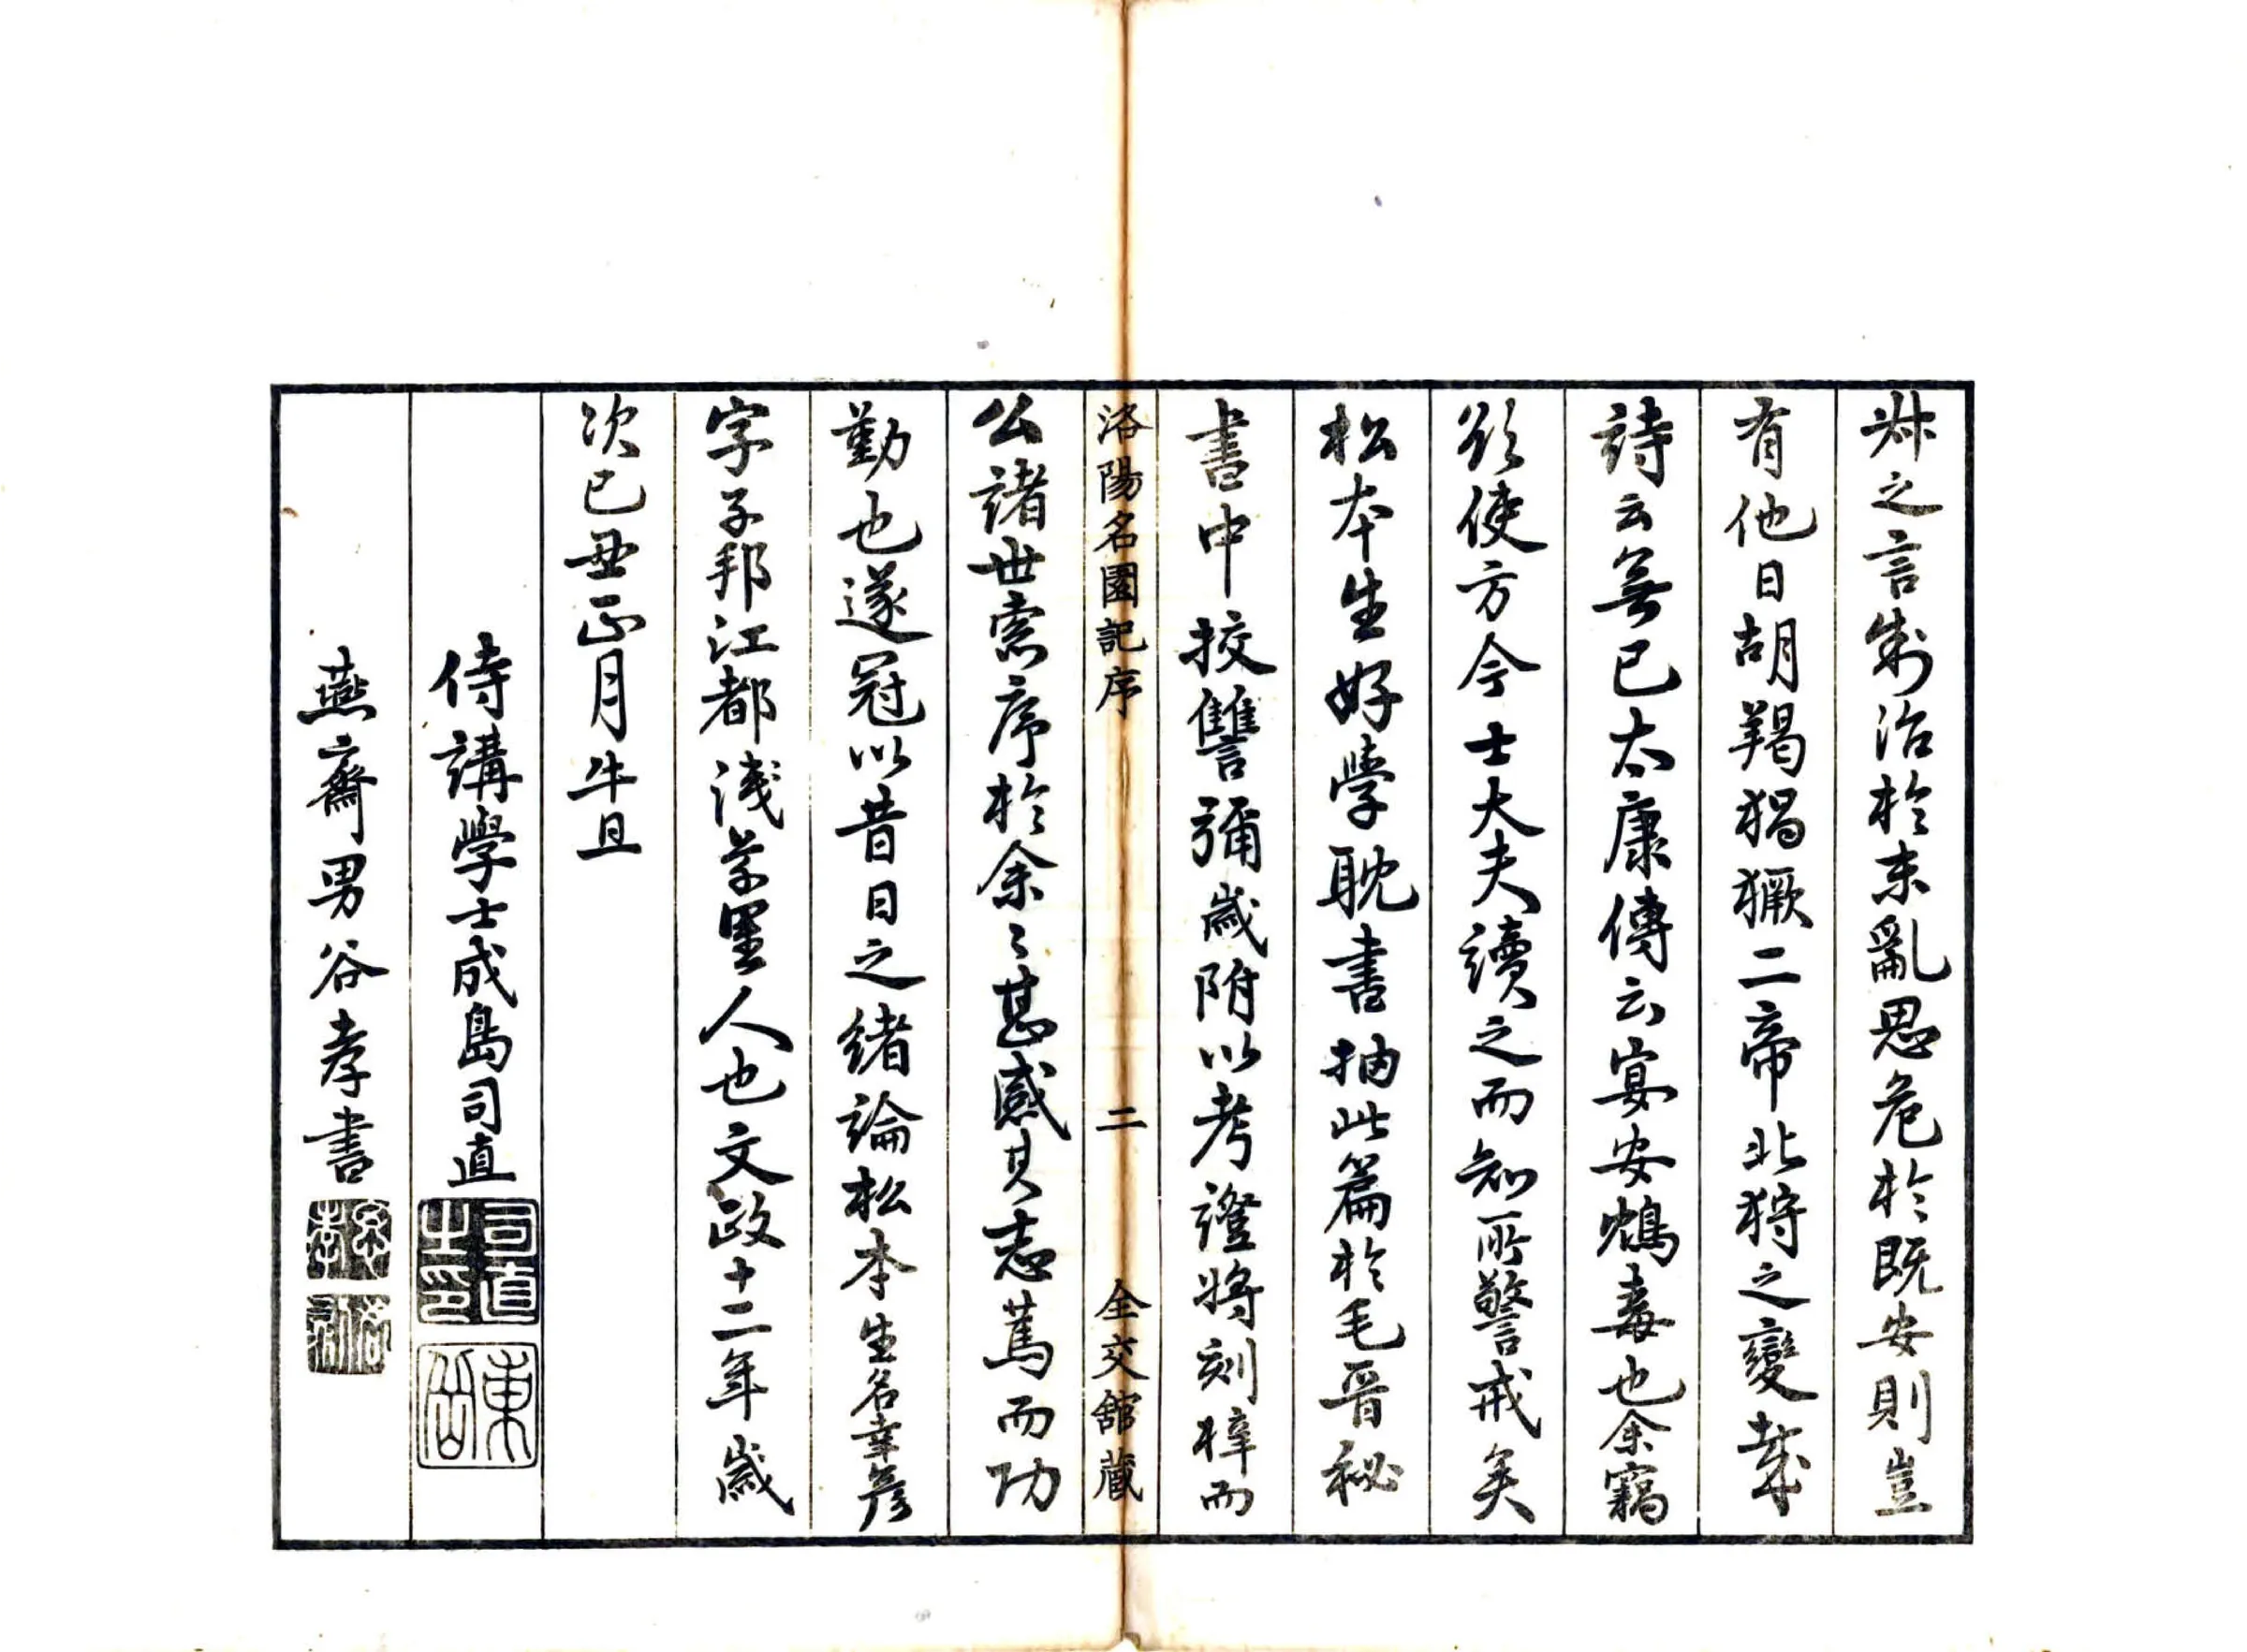 叔之言制治於未亂思危於既安則豈
有他日胡羯猖獗二帝北狩之變哉
詩云無已太康傳云宴安鴆毒也余竊
欲使方今士大夫讀之而知所警戒矣
松本生好學耽書抽此篇於毛晉秘
書中挍讐彌歳附以考證將刻梓而
洛陽名園記序 二 全交舘蔵
公諸世索序於余〻甚感其志篤而功
勤也遂冠以昔日之緒論松本生名幸彦
字子邦江都淺草里人也文政十二年歳
次己丑正月牛旦
侍講學士成島司直
司直之印
東岳
燕齋男谷孝書